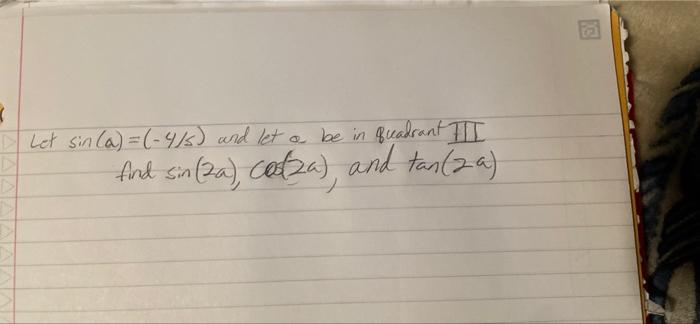 Let sin(a) = (-4/5) and let a be in quadrant III
find sin(2a), cos(2a), and tan(2a)